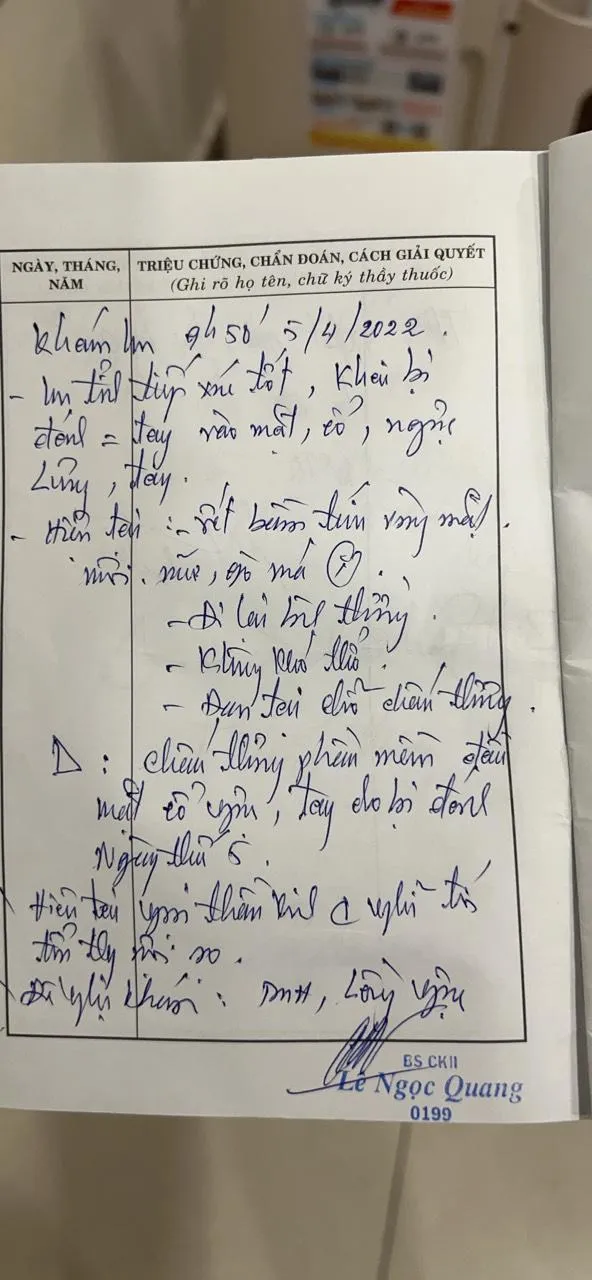 NGÀY, THÁNG, NĂM
TRIỆU CHỨNG, CHẨN ĐOÁN, CÁCH GIẢI QUYẾT
(Ghi rõ họ tên, chữ ký thầy thuốc)
Khám lm 9h50' 5/4/2022.
- tỉnh tiếp xúc tốt, Khai bị
đánh = tay vào mặt, cổ, ngực
Lưng, tay.
- Hiện tại : - vết bầm tím vùng mặt.
môi. mũi, gò má (T).
- Đi lại bình thường.
- Không khó thở.
- Đau tại chỗ chấn thương.
D : chấn thương phần mềm đầu
mặt cổ ngực, tay do bị đánh
Ngày thứ 5.
Hiện tại thần kinh nghĩ tới
tổn thg nội sọ.
Đề nghị khám : RHM, Lồng ngực
BS CKII
Lê Ngọc Quang
0199